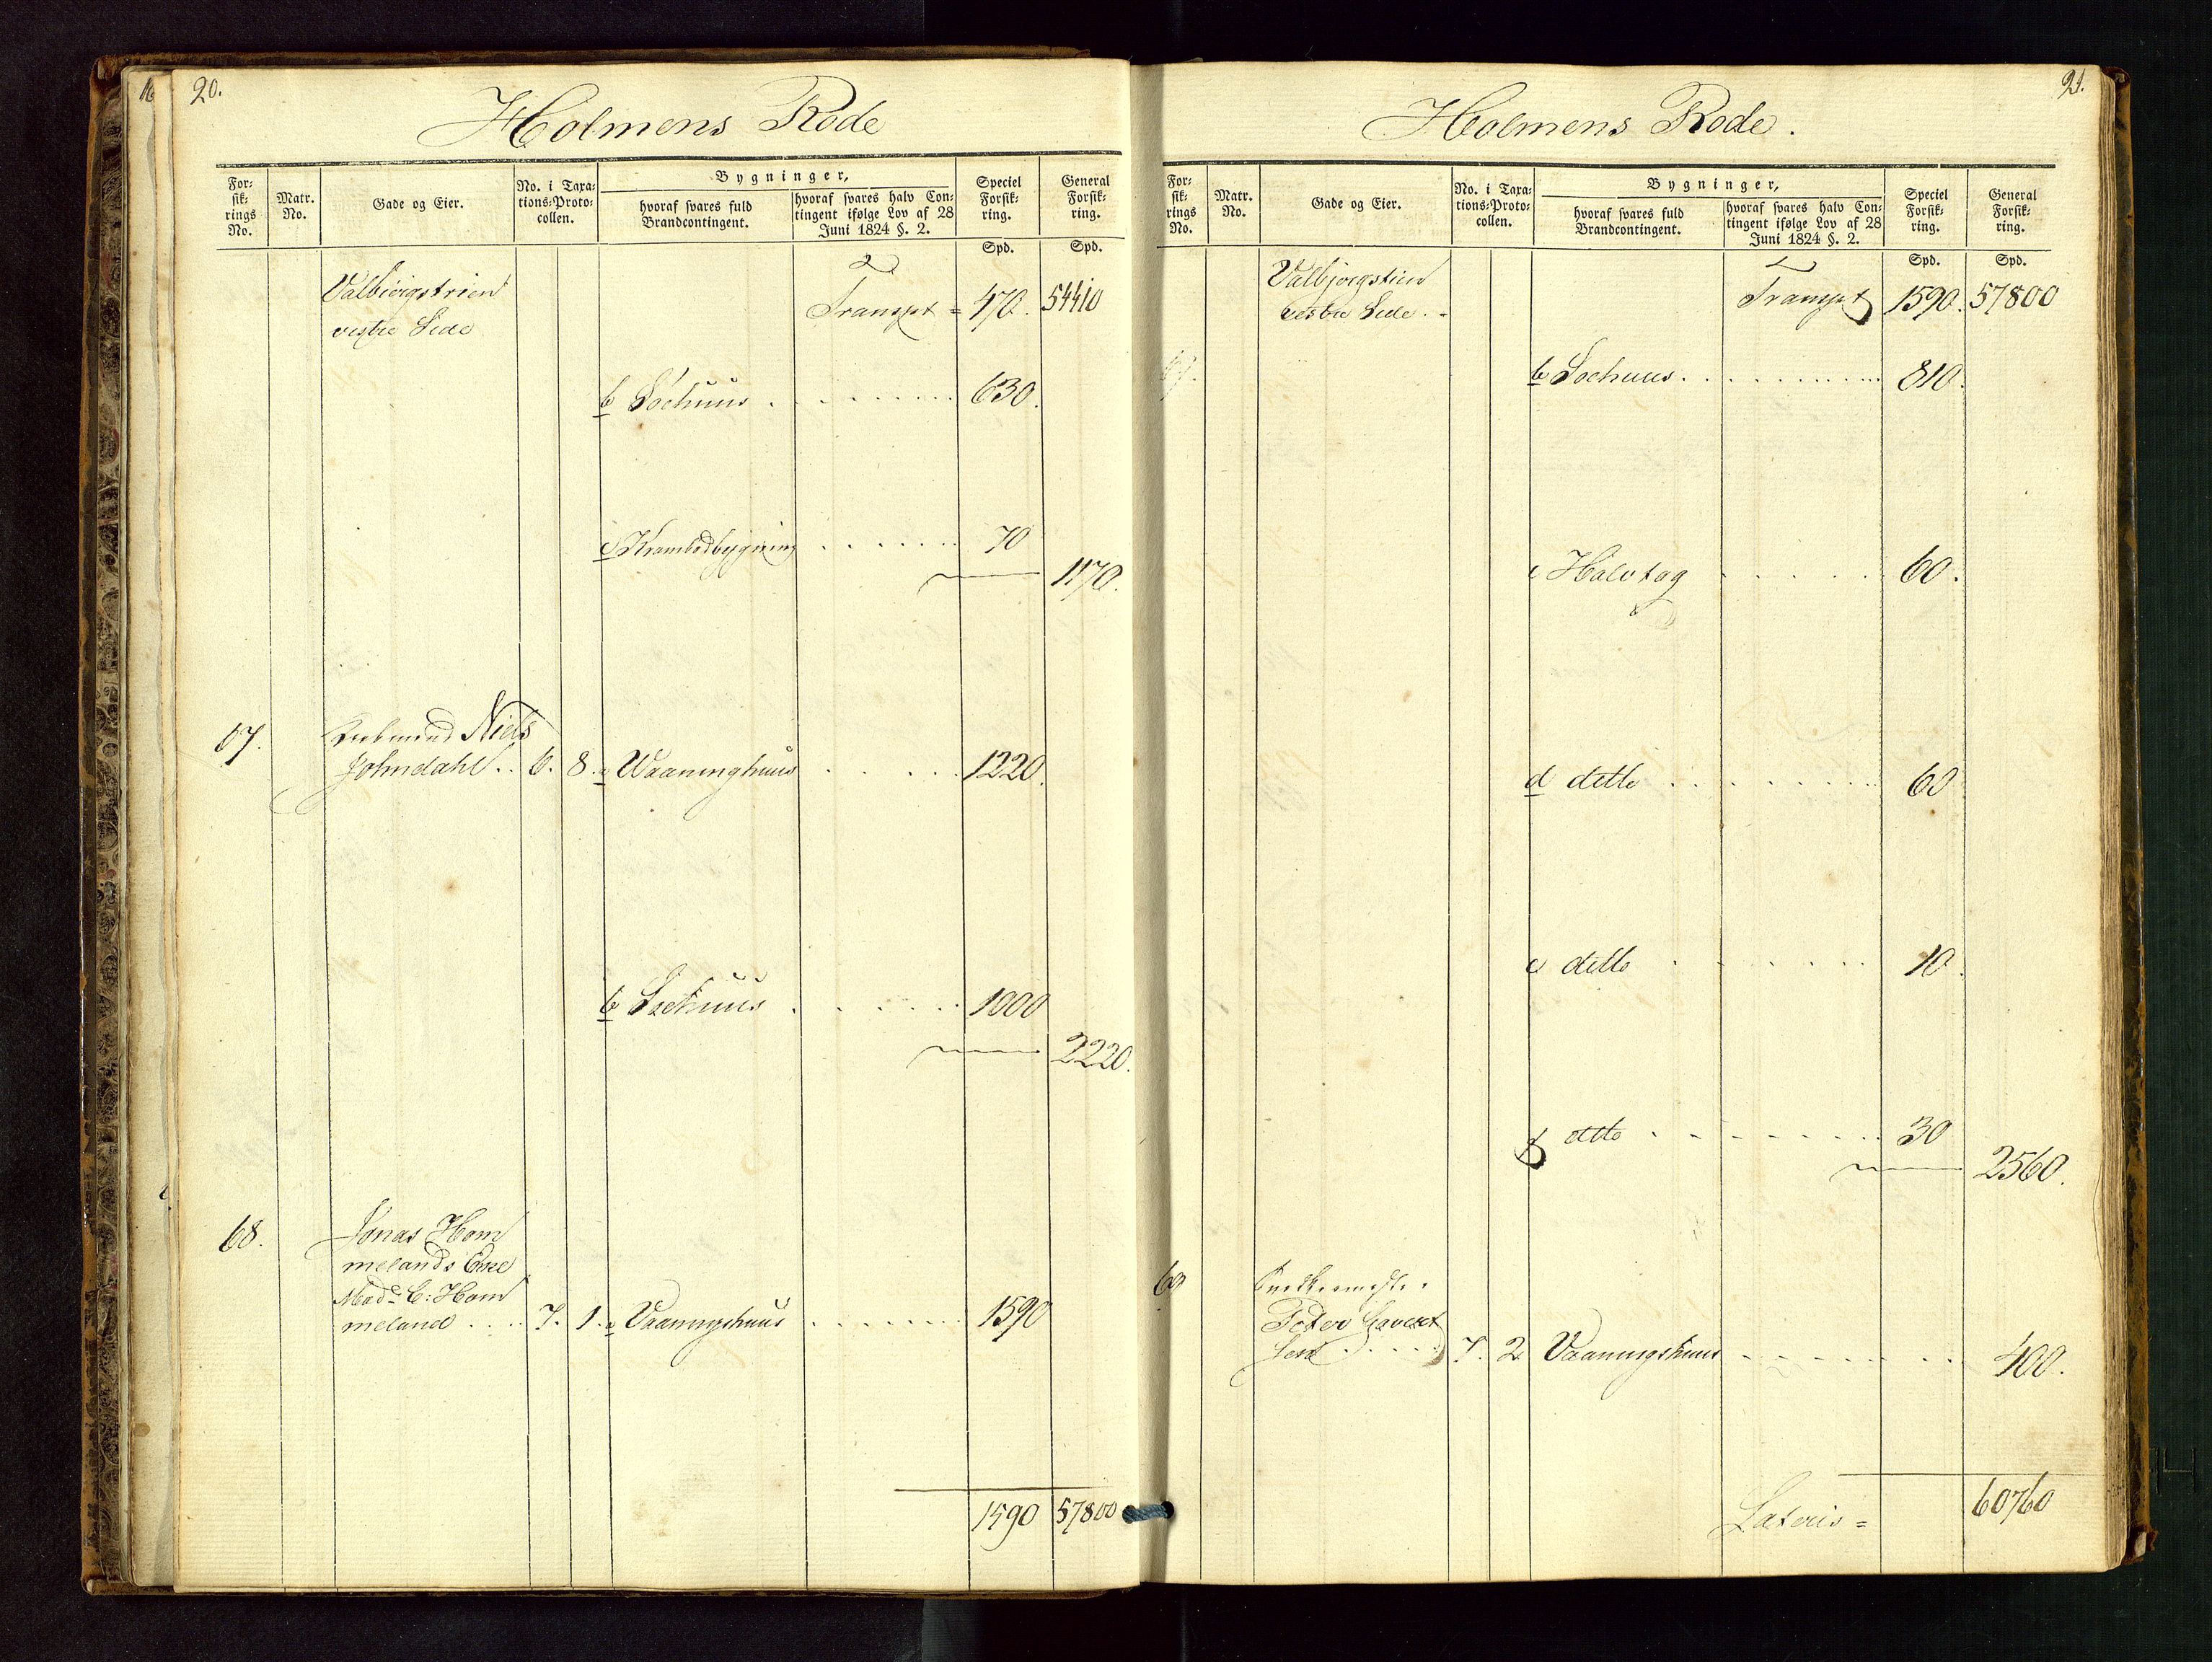 16
20.
Holmens Rode
For=
sik=
rings
No.
Matr.
No.
Gade og Eier.
No. i Taxa=
tions=Proto=
collen.
Bygninger,
hvoraf svares fuld
Brandcontingent.
hvoraf svares halv Con=
tingent ifølge Lov af 28
Juni 1824 §. 2.
Speciel
Forsik=
ring.
General
Forsik=
ring.
Spd. Spd.
Valbiergstrien
vestre Side
Transpt = 470. 54410
b Söehuus . . . . . . . . 630.
c Krambodbygning . . . . . . . 70
1170.
67.
Niels
Johndahl . . 6. 8. a Waaninghuus . . . . . 1220.
b Söehuus . . . . . 1000
2220.
68.
Jonas Hom
melands Enke
Mad. C: Hom
meland . . . . 7. 1. a Vaaningshuus . . . . . . . 1590
1590 57800
21.
Holmens Rode.
For=
sik=
rings
No.
Matr.
No.
Gade og Eier.
No. i Taxa=
tions=Proto=
collen.
Bygninger,
hvoraf svares fuld
Brandcontingent.
hvoraf svares halv Con=
tingent ifølge Lov af 28
Juni 1824 §. 2.
Speciel
Forsik=
ring.
General
Forsik=
ring.
Spd. Spd.
Valbjergstien
vestre Side . -
Transpt 1590. 57800
b Söehuus . . . . . . . . . . 810.
c Halvtag . . . . . 60.
d detto . . . . . . . . 60
e detto . . . . . . 10.
f detto . . . . . . . . 30
2560.
69
Peter Gavert
sen . . . . . 7. 2 Vaaningshuus . . . . . . . 400.
Lateris = 60760